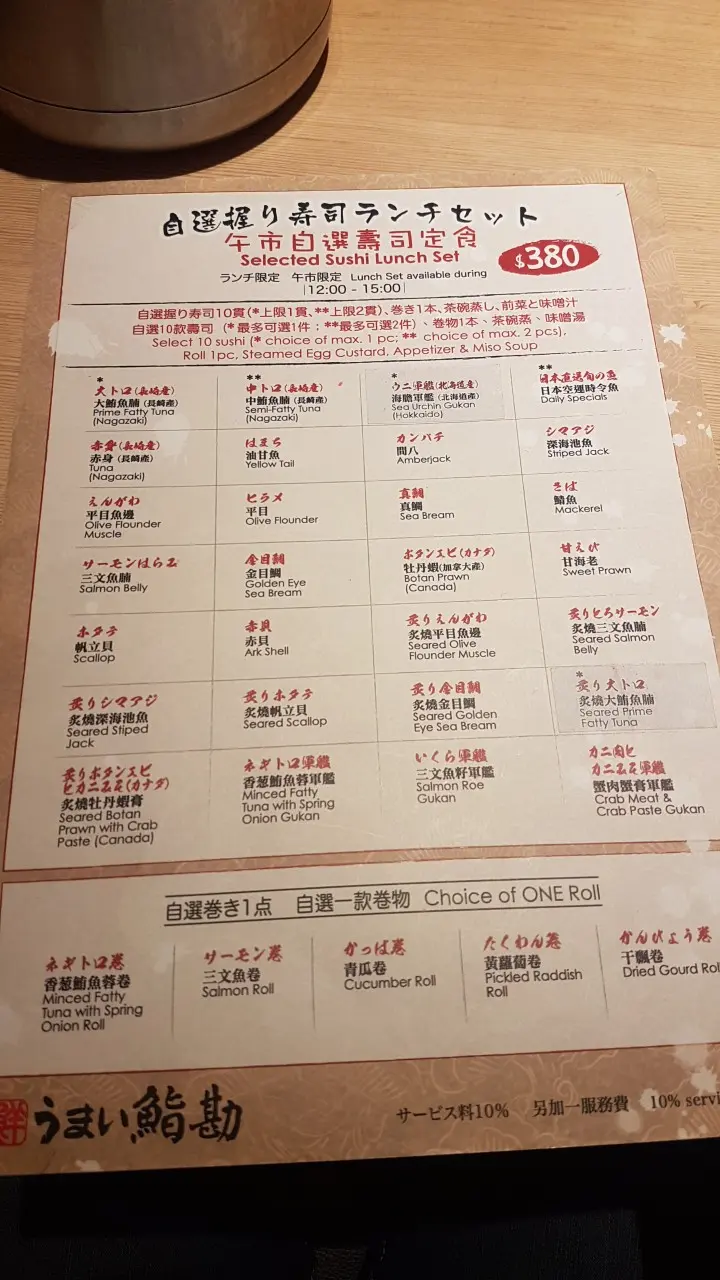 自選握り寿司ランチセット
午市自選壽司定食
Selected Sushi Lunch Set
$380
ランチ限定 午市限定 Lunch Set available during
12:00 - 15:00
自選握り寿司10貫(*上限1貫、**上限2貫)、巻き1本、茶碗蒸し、前菜と味噌汁
自選10款壽司 (*最多可選1件；**最多可選2件)、卷物1本、茶碗蒸、味噌湯
Select 10 sushi (* choice of max. 1 pc; ** choice of max. 2 pcs),
Roll 1pc, Steamed Egg Custard, Appetizer & Miso Soup
*
大トロ(長崎産)
大鮪魚腩(長崎產)
Prime Fatty Tuna
(Nagazaki)
**
中トロ(長崎産)
中鮪魚腩(長崎產)
Semi-Fatty Tuna
(Nagazaki)
*
ウニ軍艦(北海道産)
海膽軍艦(北海道產)
Sea Urchin Gukan
(Hokkaido)
**
日本直送旬の魚
日本空運時令魚
Daily Specials
赤身(長崎産)
赤身(長崎產)
Tuna
(Nagazaki)
はまち
油甘魚
Yellow Tail
カンパチ
間八
Amberjack
シマアジ
深海池魚
Striped Jack
えんがわ
平目魚邊
Olive Flounder
Muscle
ヒラメ
平目
Olive Flounder
真鯛
真鯛
Sea Bream
さば
鯖魚
Mackerel
サーモンはらみ
三文魚腩
Salmon Belly
金目鯛
金目鯛
Golden Eye
Sea Bream
ボタンエビ(カナダ)
牡丹蝦(加拿大產)
Botan Prawn
(Canada)
甘えび
甘海老
Sweet Prawn
ホタテ
帆立貝
Scallop
赤貝
赤貝
Ark Shell
炙りえんがわ
炙燒平目魚邊
Seared Olive
Flounder Muscle
炙りとろサーモン
炙燒三文魚腩
Seared Salmon
Belly
炙りシマアジ
炙燒深海池魚
Seared Stiped
Jack
炙りホタテ
炙燒帆立貝
Seared Scallop
炙り金目鯛
炙燒金目鯛
Seared Golden
Eye Sea Bream
*
炙り大トロ
炙燒大鮪魚腩
Seared Prime
Fatty Tuna
炙りボタンエビ
とカニみそ(カナダ)
炙燒牡丹蝦膏
Seared Botan
Prawn with Crab
Paste (Canada)
ネギトロ軍艦
香葱鮪魚蓉軍艦
Minced Fatty
Tuna with Spring
Onion Gukan
いくら軍艦
三文魚籽軍艦
Salmon Roe
Gukan
カニ肉と
カニみそ軍艦
蟹肉蟹膏軍艦
Crab Meat &
Crab Paste Gukan
自選巻き1点 自選一款卷物 Choice of ONE Roll
ネギトロ巻
香葱鮪魚蓉卷
Minced Fatty
Tuna with Spring
Onion Roll
サーモン巻
三文魚卷
Salmon Roll
かっぱ巻
青瓜卷
Cucumber Roll
たくわん巻
黃蘿蔔卷
Pickled Raddish
Roll
かんぴょう巻
干瓢卷
Dried Gourd Rol
うまい鮨勘
サービス料10% 另加一服務費 10% servi